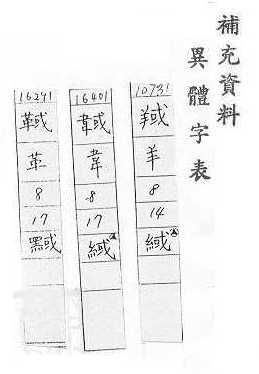 補充資料
異體字表
10731
羊
8
14
緎
16401
韋
8
17
緎
16291
革
8
17
䵧